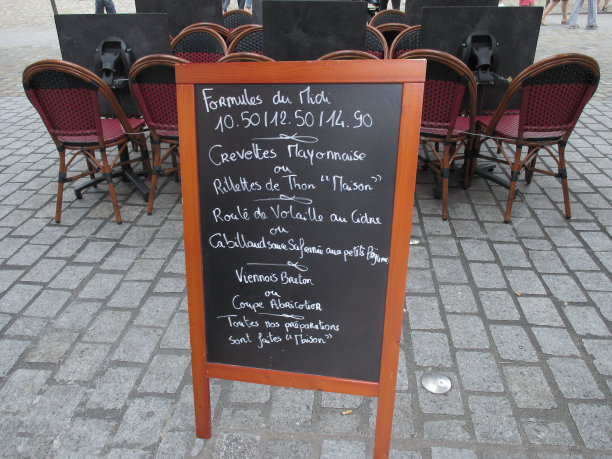 Formules du Midi
10.50/12.50/14.90
Crevettes Mayonnaise
ou
Rillettes de Thon "Maison"
Roulé de Volaille au Cidre
ou
Cabillaud sauce Safranée aux petits légume
Viennois Breton
ou
Coupe Abricotier
Toutes nos préparations
sont faites "Maison"